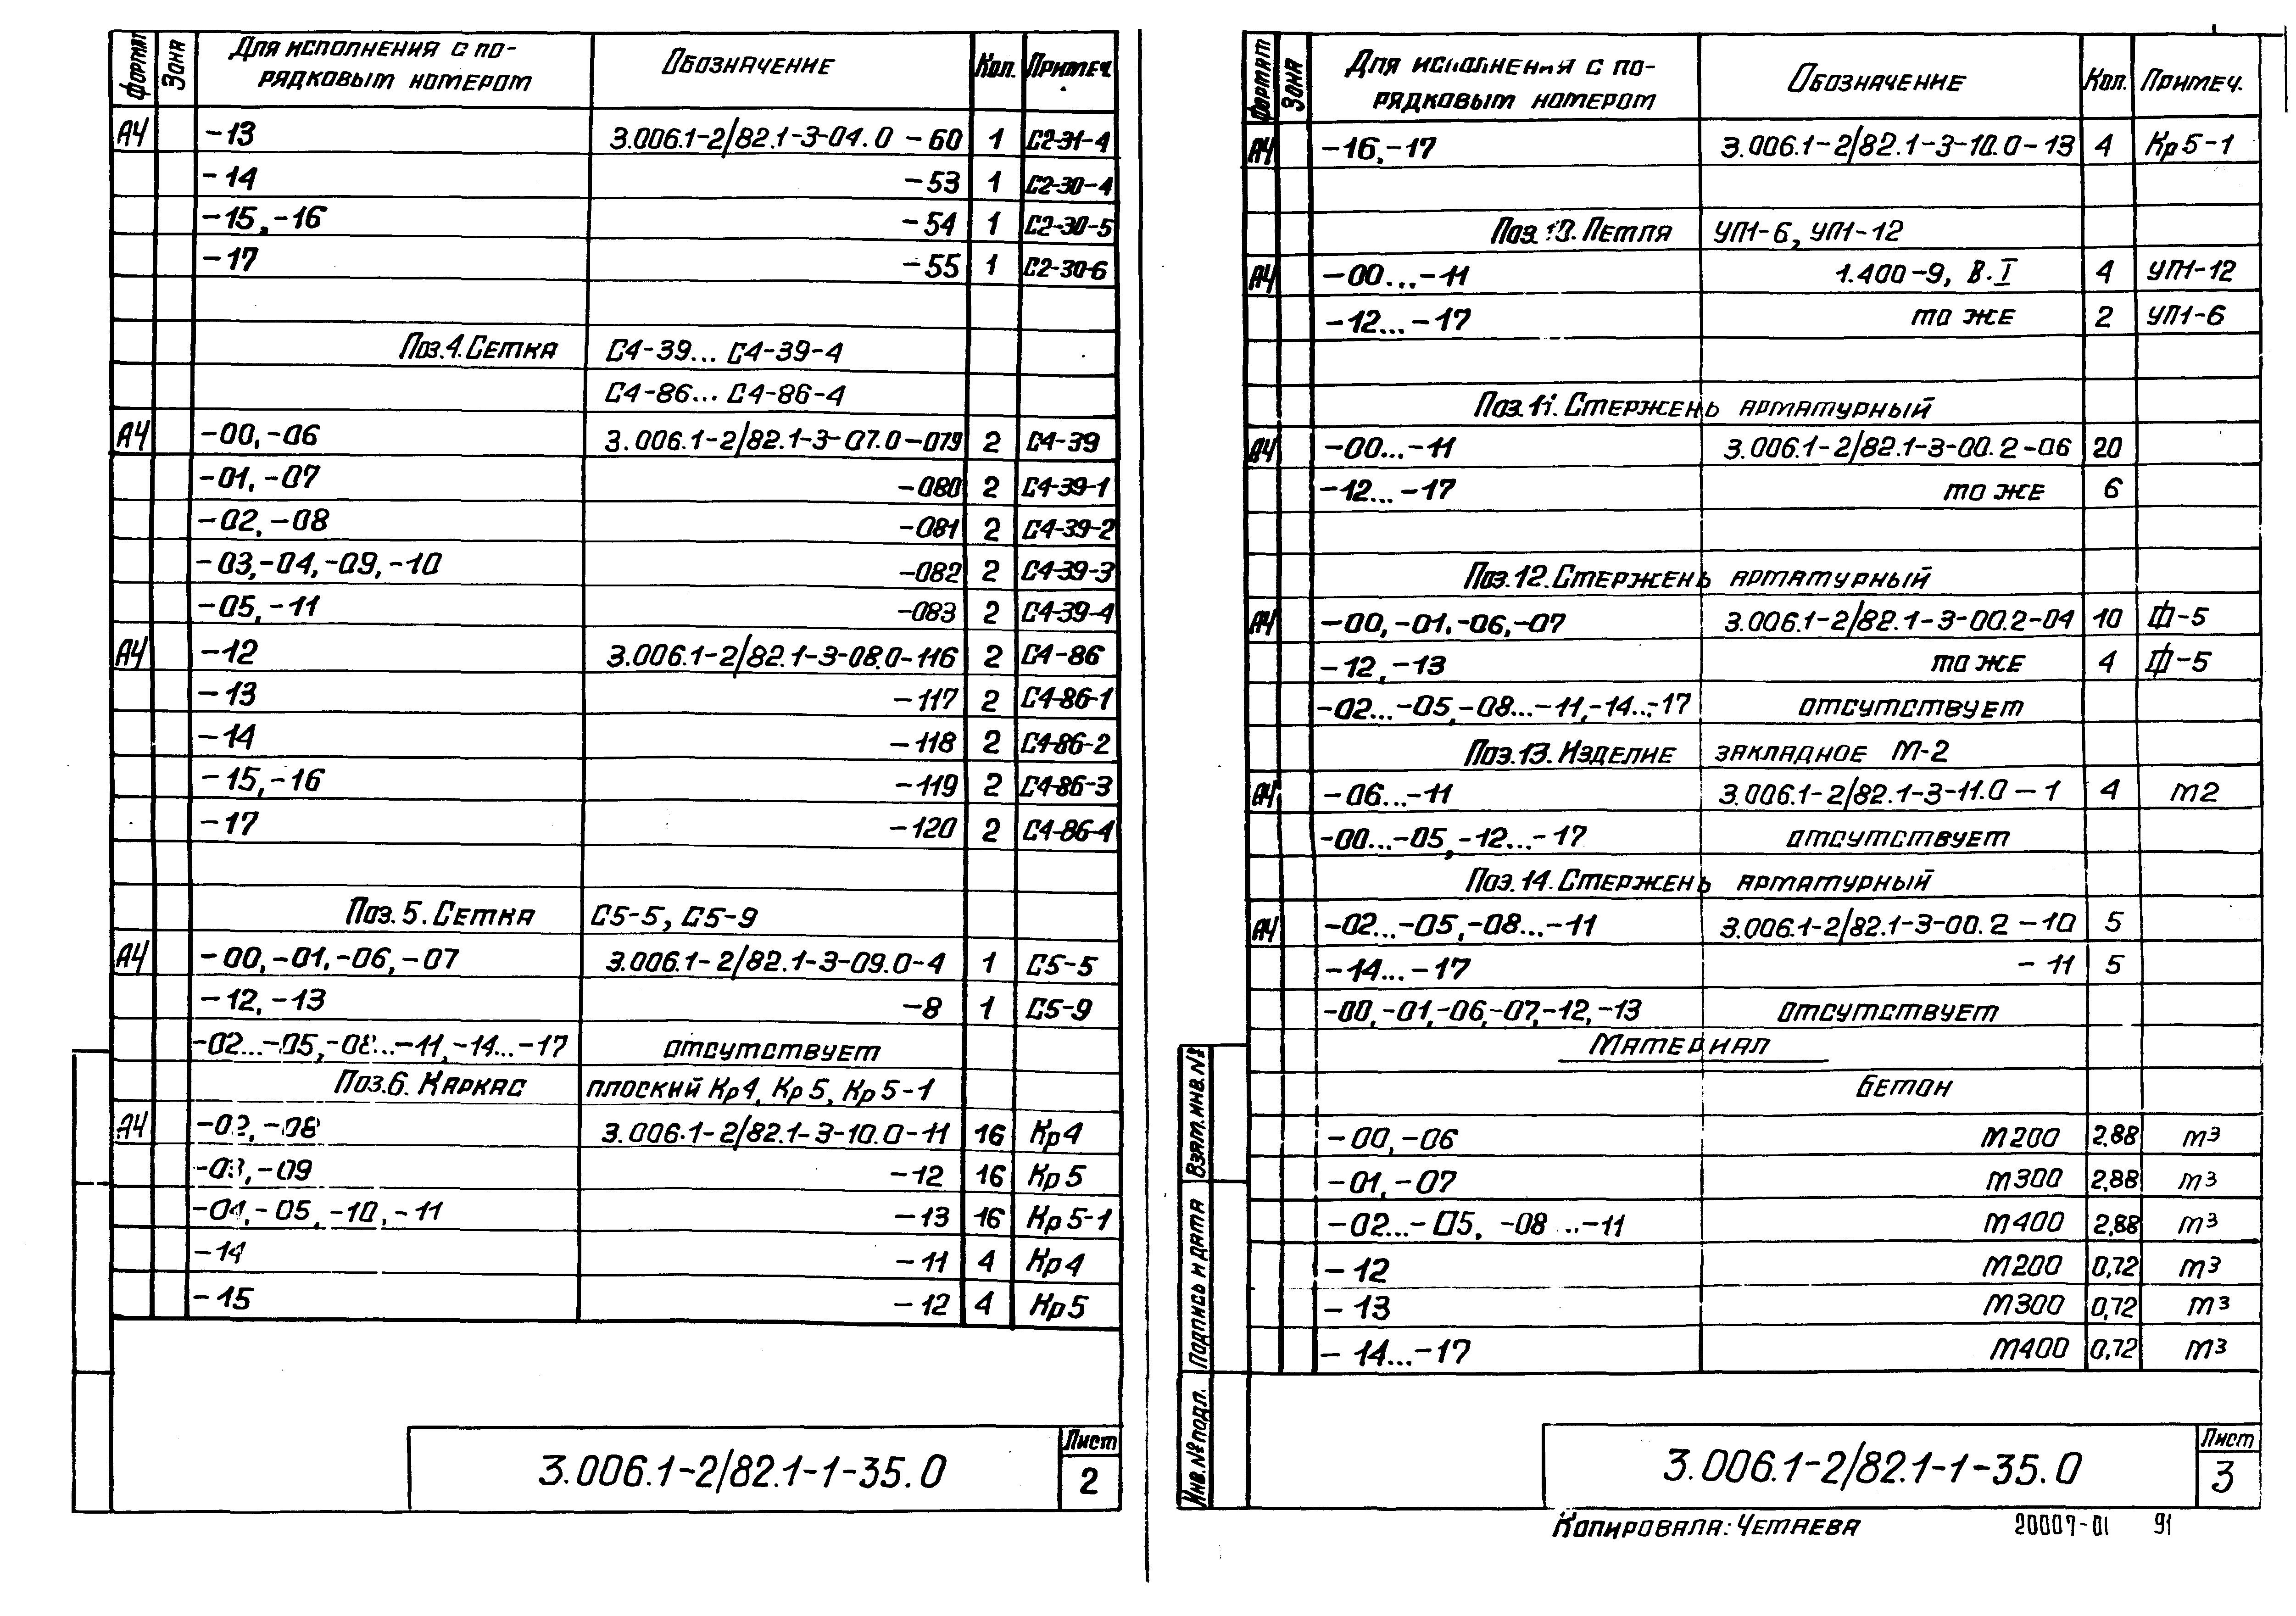 Формат Зона Для исполнения с по- Обозначение Кол. Примеч.
рядковым номером
А4 -13 3.006.1-2/82.1-3-04.0 -60 1 С2-31-4
-14 -53 1 С2-30-4
-15, -16 -54 1 С2-30-5
-17 -55 1 С2-30-6
Поз.4. Сетка С4-39... С4-39-4
С4-86... С4-86-4
А4 -00, -06 3.006.1-2/82.1-3-07.0-079 2 С4-39
-01, -07 -080 2 С4-39-1
-02, -08 -081 2 С4-39-2
-03,-04,-09,-10 -082 2 С4-39-3
-05, -11 -083 2 С4-39-4
А4 -12 3.006.1-2/82.1-3-08.0-116 2 С4-86
-13 -117 2 С4-86-1
-14 -118 2 С4-86-2
-15, -16 -119 2 С4-86-3
-17 -120 2 С4-86-4
Поз. 5. Сетка С5-5, С5-9
А4 -00, -01, -06, -07 3.006.1-2/82.1-3-09.0-4 1 С5-5
-12, -13 -8 1 С5-9
-02...-05,-08...-11,-14...-17 отсутствует
Поз.6. Каркас плоский Кр4, Кр5, Кр5-1
А4 -02, -08 3.006.1-2/82.1-3-10.0-11 16 Кр4
-03, -09 -12 16 Кр5
-04, -05, -10, -11 -13 16 Кр5-1
-14 -11 4 Кр4
-15 -12 4 Кр5
3.006.1-2/82.1-1-35.0 Лист
2
Формат Зона Для исполнения с по- Обозначение Кол. Примеч.
рядковым номером
А4 -16, -17 3.006.1-2/82.1-3-10.0-13 4 Кр5-1
Поз. Петля УП1-6, УП1-12
А4 -00...-11 1.400-9, В. I 4 УП1-12
-12...-17 то же 2 УП1-6
Поз.11. Стержень арматурный
А4 -00...-11 3.006.1-2/82.1-3-00.2-06 20
-12...-17 то же 6
Поз.12. Стержень арматурный
А4 -00, -01, -06, -07 3.006.1-2/82.1-3-00.2-04 10 Ш-5
-12, -13 то же 4 Ш-5
-02...-05,-08...-11,-14...-17 отсутствует
Поз.13. Изделие закладное М-2
А4 -06...-11 3.006.1-2/82.1-3-11.0-1 4 М2
-00...-05, -12...-17 отсутствует
Поз.14. Стержень арматурный
А4 -02...-05, -08...-11 3.006.1-2/82.1-3-00.2-10 5
-14...-17 -11 5
-00, -01, -06, -07, -12, -13 отсутствует
Материал
Бетон
-00, -06 М200 2,88 м³
-01, -07 М300 2,88 м³
-02...-05, -08...-11 М400 2,88 м³
-12 М200 0,72 м³
-13 М300 0,72 м³
-14...-17 М400 0,72 м³
Взам. инв. №
Подпись и дата
Инв. № подл.
3.006.1-2/82.1-1-35.0 Лист
3
Копировала: Четаева 20007-01 91